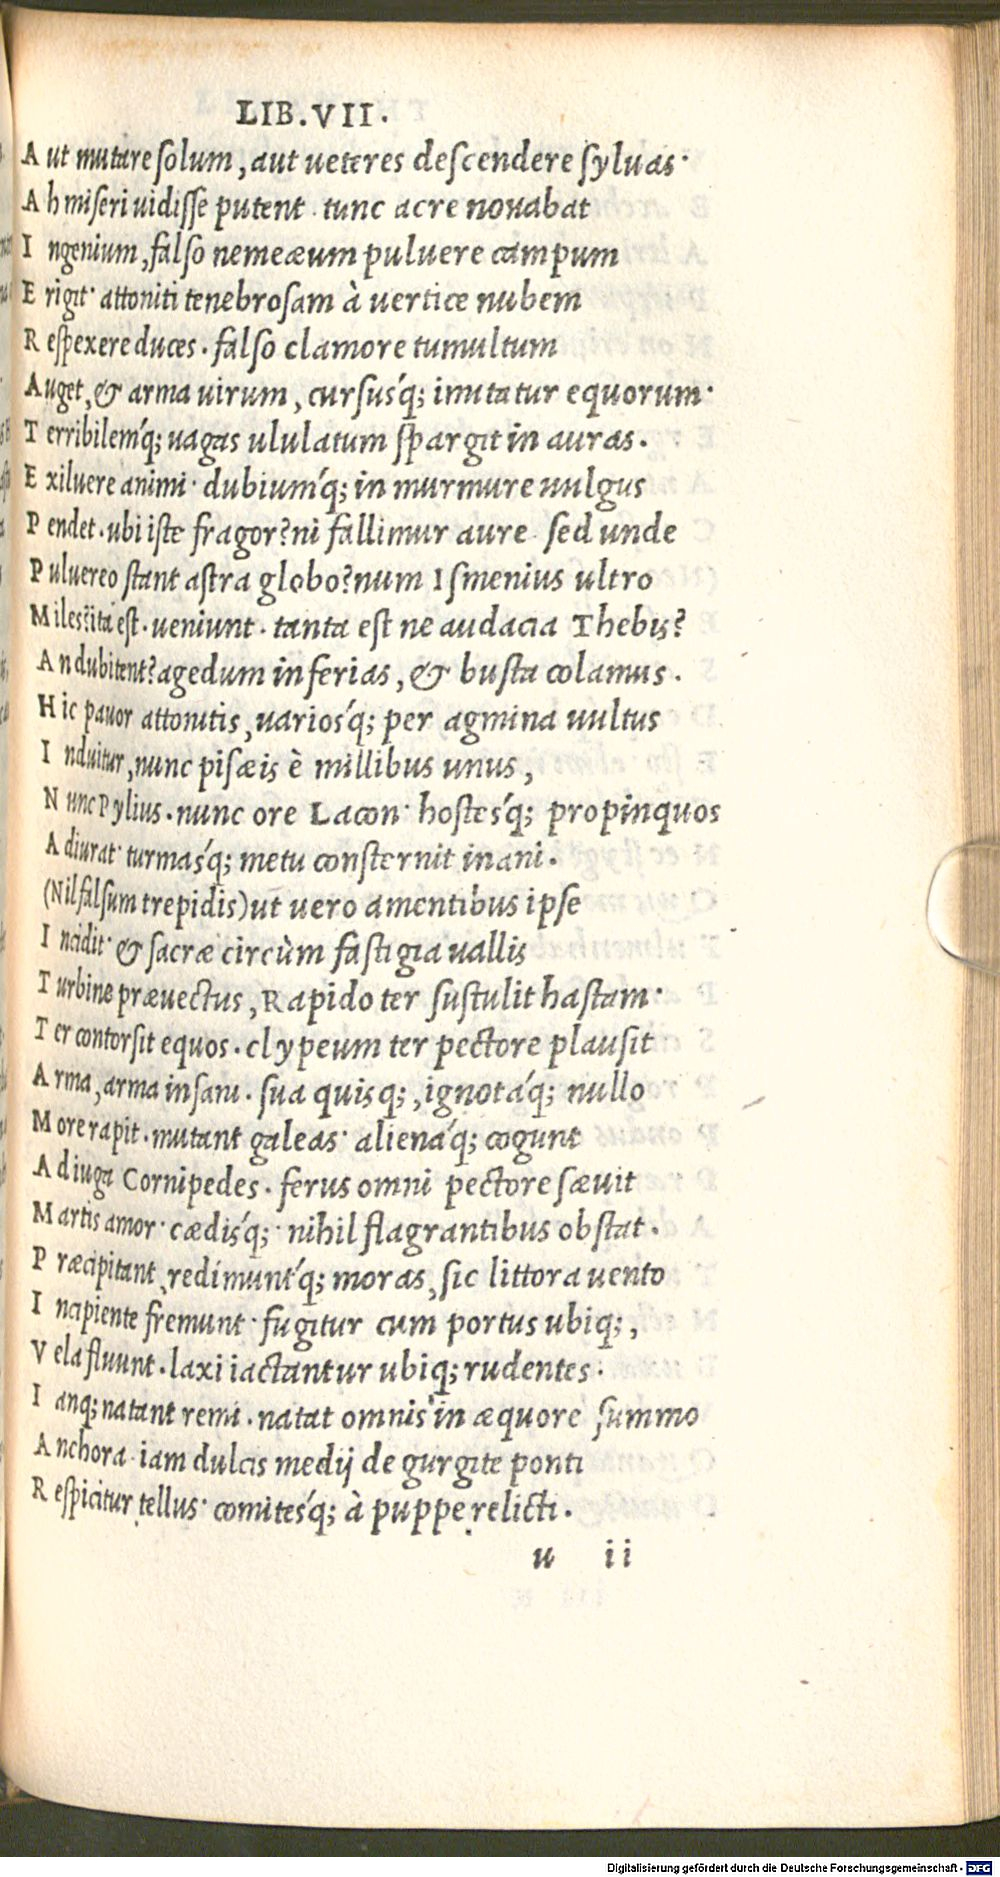 LIB.VII.
Aut mutare solum, aut ueteres descendere syluas·
Ah miseri uidisse putent· tunc acre nouabat
Ingenium, falso nemeæum puluere campum
Erigit· attoniti tenebrosam à uertice nubem
Respexere duces. falso clamore tumultum
Auget, & arma uirum, cursusq́; imitatur equorum·
Terribilemq́; uagas ululatum spargit in auras.
Exiluere animi· dubiumq́; in murmure uulgus
Pendet. ubi iste fragor? ni fallimur aure· sed unde
Puluereo stant astra globo? num Ismenius ultro
Miles? ita est. ueniunt. tanta est ne audacia Thebis?
An dubitent? agedum inferias, & busta colamus.
Hic pauor attonitis, uariosq́; per agmina uultus
Induitur, nunc pisæis è millibus unus,
Nunc Pylius. nunc ore Lacon· hostesq́; propinquos
Adiurat· turmasq́; metu consternit inani.
(Nil falsum trepidis) ut uero amentibus ipse
Incidit· & sacræ circùm fastigia uallis
Turbine præuectus, Rapido ter sustulit hastam·
Ter contorsit equos. clypeum ter pectore plausit
Arma, arma insani. sua quisq;, ignotáq; nullo
More rapit. mutant galeas· alienáq; cogunt
Ad iuga Cornipedes. ferus omni pectore sæuit
Martis amor· cædisq́;· nihil flagrantibus obstat.
Præcipitant, redimuntq́; moras, sic littora uento
Incipiente fremunt· fugitur cum portus ubiq;,
Vela fluunt. laxi iactantur ubiq; rudentes.
Ianq; natant remi. natat omnis in æquore summo
Anchora· iam dulcis medij de gurgite ponti
Respicitur tellus· comitesq́; à puppe relicti.
u ii
Digitalisierung gefördert durch die Deutsche Forschungsgemeinschaft - DFG